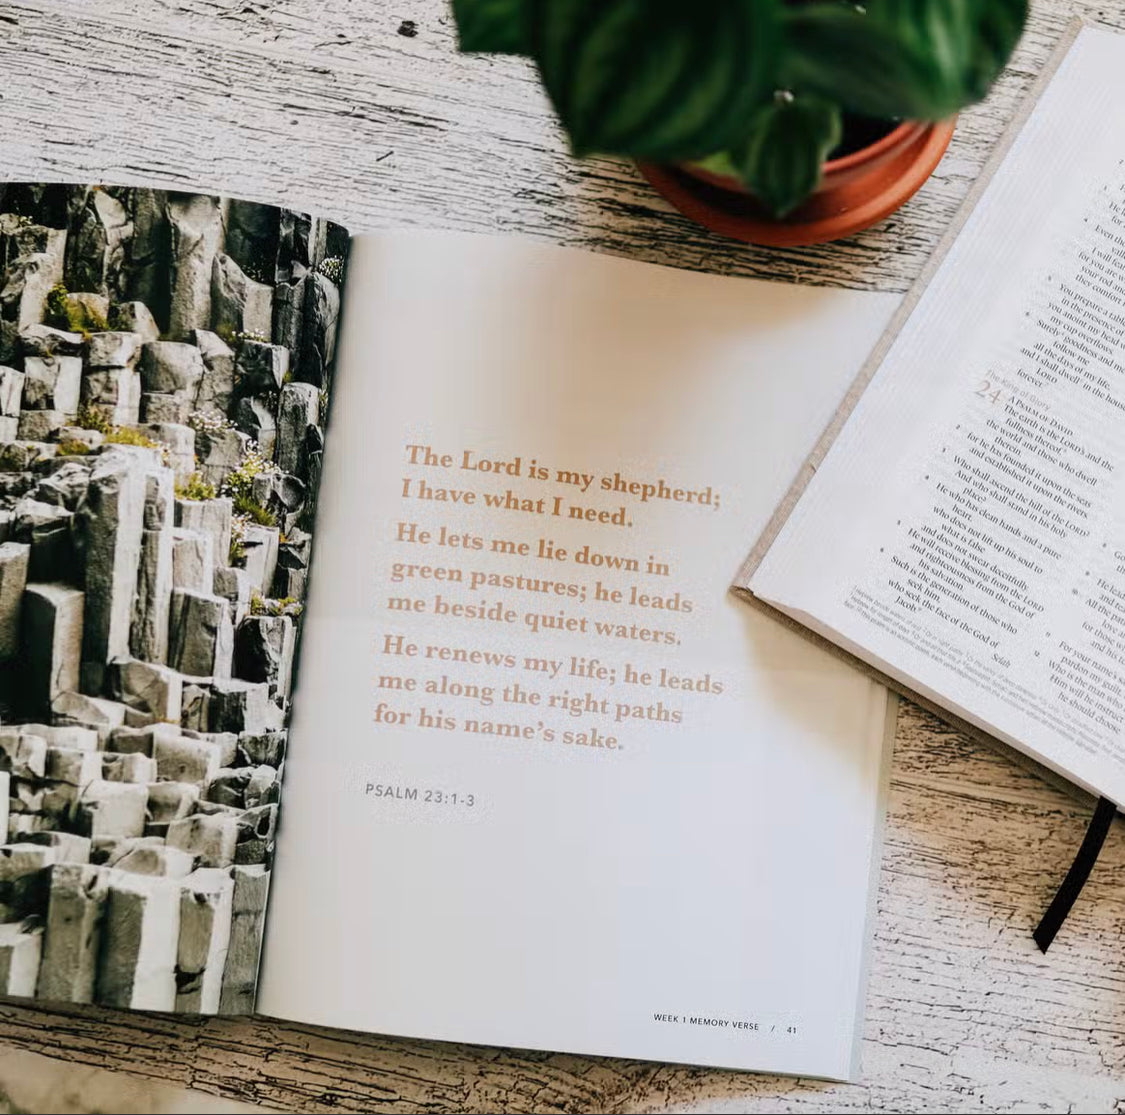 The Lord is my shepherd;
I have what I need.
He lets me lie down in
green pastures; he leads
me beside quiet waters.
He renews my life; he leads
me along the right paths
for his name's sake.
PSALM 23:1-3
WEEK 1 MEMORY VERSE / 41
Even the
I will fear
for you are w
your rod and
they comfort
You prepare a table
in the presence of
you anoint my head w
my cup overflows.
Surely goodness and me
follow me
all the days of my life,
and I shall dwell in the house
LORD
forever.
The King of Glory
24 A PSALM OF DAVID.
The earth is the LORD's and the
fullness thereof,
the world and those who dwell
therein,
for he has founded it upon the seas
and established it upon the rivers.
Who shall ascend the hill of the LORD?
And who shall stand in his holy
place?
He who has clean hands and a pure
heart,
who does not lift up his soul to
what is false
and does not swear deceitfully.
He will receive blessing from the LORD
and righteousness from the God of
his salvation.
Such is the generation of those who
seek him,
who seek the face of the God of
Jacob. Selah
He lead
All the path
for those w
and his te
For your name's
pardon my guilt,
Who is the man who
Him will he instruct
he should choose